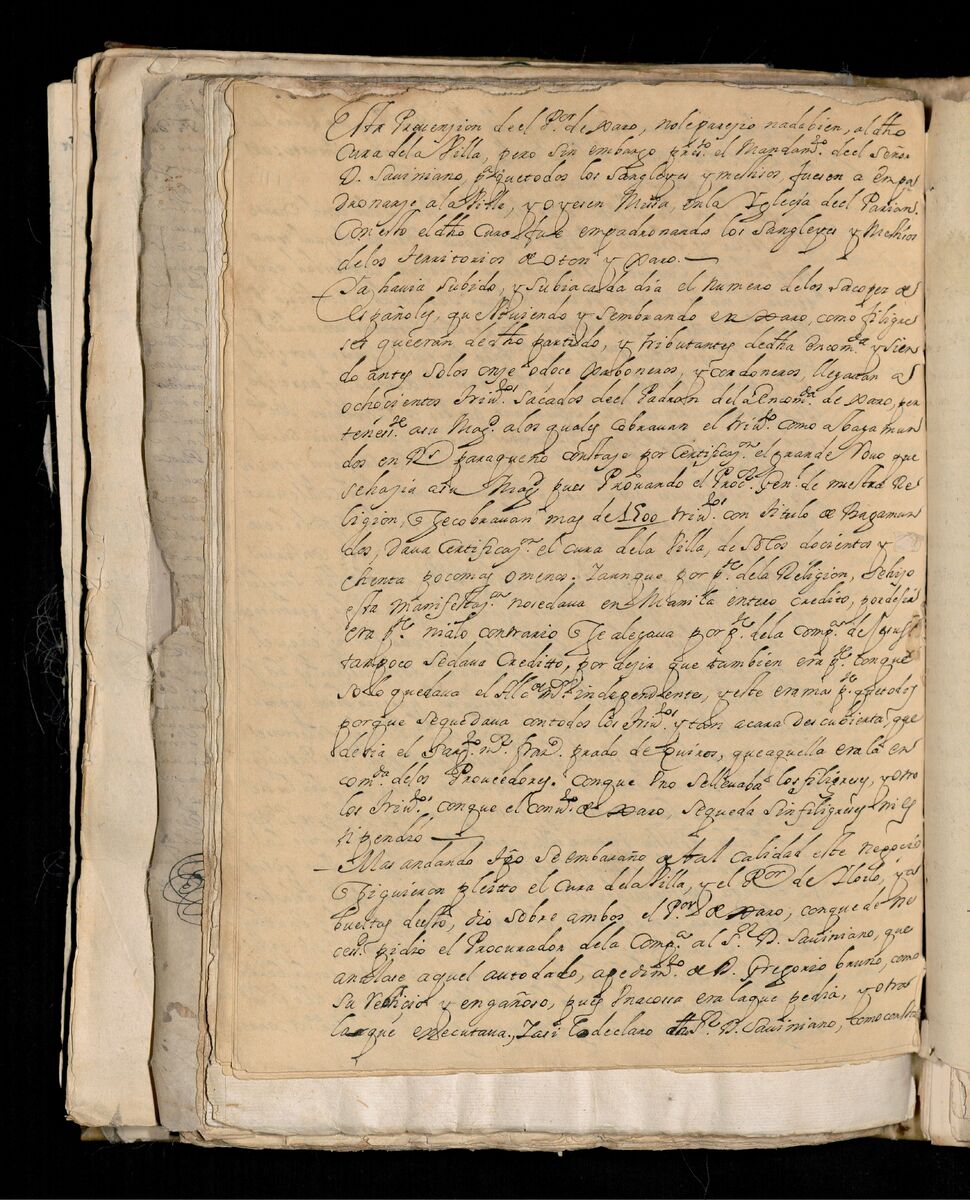 Esta Prevension de el P.or de Xaro, no le parejio nada bien, al dho
Cura de la Villa, pero sin embargo pres.to el Mandam.to de el Señor
D. Saviniano, p.a que todos los Sangleyes y mestisos, fuesen a empa
dronarse a la Villa, y oyesen Missa, en la Yglecia de el Parian.
Con esto el dho Cura fue empadronando los Sangleyes y Mestisos
de los territorios de Oton y Xaro. —
Ya havia subido, y subia cada dia el numero de los Sacopes de
Españoles, que viviendo y sembrando en Xaro, como filigre
ses que eran de dho partido, y tributantes de dha Encom.da y sien
do antes solos onse o dose Carboneros, y cordoneros, llegavan a
ochocientos triv.tos sacados de el Padron de la Encom.da de Xaro, per
tenes.te a su Mag.d a los quales cobravan el triv.to como a bagamun
dos en R.s para que no constase por Certificaz.on el grande Rovo que
se hasia a su Mag.d pues Provando el Proc.or Gen.l de nuestra Re
ligion, q se cobravan mas de 1500 triv.tos con titulo de Bagamun
dos, dava Certificaz.on el Cura de la Villa, de solos docientos y
chenta poco mas o menos. Y aunque por p.te de la Religion, se hiso
esta manifestaz.on no se dava en Manila entero credito, por desir
era p.te ni a lo contrario q se alegava por p.te de la Comp.a de Jesus
tampoco se dava Creditto, por desir que tambien era p.te conque
solo quedava el Alc.e m.or independente, y este era mas p.te que todos
porque se quedava con todos los triv.tos y tan a cara descubierta que
desia el Sarg.to m.or Fran.co prado de Quiros, que aquella era la en
com.da de los Proveedores. Conque uno se llevaba los filigreses, y otro
los triv.tos conque el Conv.to de Xaro, se queda sin filigreses ni es
tipendio —
Mas andando tpo se embaraño de tal calidad este negocio
q siguieron pleitto el Cura de la Villa, y el R.or de Yloilo, y a
bueltas de esto, dio sobre ambos el P.or de Xaro, conque de ne
ces.d pidio el Procurador de la Comp.a al S.or D. Saviniano, que
anulase aquel auto dado, a pedim.to de D. Gregorio bruno, como
Su recticio y engañoso, pues una cossa era la que pedia, y otra
la que executava, Y asi lo declaro dho S.or D. Saviniano, como consta